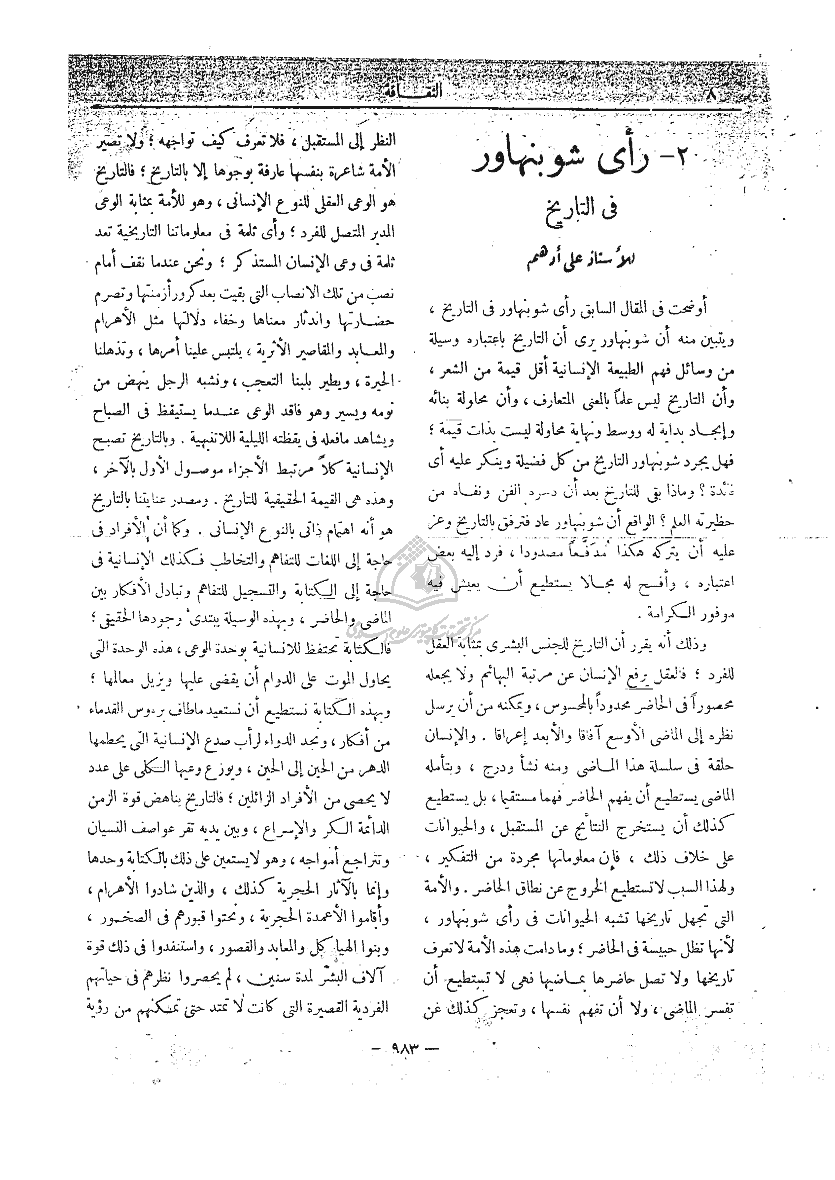 ٨
الثقافة
٢- رأى شوبنهاور
فى التاريخ
للأستاذ على أدهم
أوضحت فى المقال السابق رأى شوبنهاور فى التاريخ ،
ويتبين منه أن شوبنهاور يرى أن التاريخ باعتباره وسيلة
من وسائل فهم الطبيعة الإنسانية أقل قيمة من الشعر ،
وأن التاريخ ليس علماً بالمعنى المتعارف ، وأن محاولة بنائه
وإيجاد بداية له ووسط ونهاية محاولة ليست بذات قيمة ؛
فهل يجرد شوبنهاور التاريخ من كل فضيلة وينكر عليه أى
فائدة ؟ وماذا بقى للتاريخ بعد أن الفن ونفاه من
حظيرته العلم ؟ الواقع أن شوبنهاور عاد فترفق بالتاريخ وعز
عليه أن يتركه هكذا مدفَّعاً مصدودا ، فرد إليه بعض
اعتباره ، وأفسح له مجالا يستطيع أن يعيش فيه
موفور الكرامة .
وذلك أنه يقرر أن التاريخ للجنس البشرى بمثابة العقل
للفرد ؛ فالعقل يرفع الإنسان عن مرتبة البهائم ولا يجعله
محصوراً فى الحاضر محدوداً بالمحسوس ، ويمكنه من أن يرسل
نظره إلى الماضى الأوسع آفاقا والأبعد إعراقا . والإنسان
حلقة فى سلسلة هذا الماضى ومنه نشأ ودرج ، وبتأمله
الماضى يستطيع أن يفهم الحاضر فهما مستقيما ، بل يستطيع
كذلك أن يستخرج النتائج عن المستقبل ، والحيوانات
على خلاف ذلك ، فإن معلوماتها مجردة من التفكير ،
ولهذا السبب لا تستطيع الخروج عن نطاق الحاضر . والأمة
التى تجهل تاريخها تشبه الحيوانات فى رأى شوبنهاور ،
لأنها تظل حبيسة فى الحاضر ؛ وما دامت هذه الأمة لا تعرف
تاريخها ولا تصل حاضرها بماضيها فهى لا تستطيع أن
تفسر الماضى ، ولا أن تفهم نفسها ، وتعجز كذلك عن
النظر إلى المستقبل ، فلا تعرف كيف تواجهه ؛ ولا تصير
الأمة شاعرة بنفسها عارفة بوجودها إلا بالتاريخ ؛ فالتاريخ
هو الوعى العقلى للنوع الإنسانى ، وهو للأمة بمثابة الوعى
المدبر المتصل للفرد ؛ وأى ثلمة فى معلوماتنا التاريخية تعد
ثلمة فى وعى الإنسان المستذكر ؛ ونحن عندما نقف أمام
نصب من تلك الانصاب التى بقيت بعد كرور أزمنتها وتصرم
حضارتها واندثار معناها وخفاء دلالتها مثل الأهرام
والمعابد والمقاصير الأثرية ، يلتبس علينا أمرها ، وتذهلنا
الحيرة ، ويطير بلبنا التعجب ، ونشبه الرجل ينهض من
نومه ويسير وهو فاقد الوعى عندما يستيقظ فى الصباح
ويشاهد مافعله فى يقظته الليلية اللاتنبهية . وبالتاريخ تصبح
الإنسانية كلاً مرتبط الأجزاء موصول الأول بالآخر ،
وهذه هى القيمة الحقيقية للتاريخ . ومصدر عنايتنا بالتاريخ
هو أنه اهتمام ذاتى بالنوع الإنسانى . وكما أن الأفراد فى
حاجة إلى اللغات للتفاهم والتخاطب فكذلك الإنسانية فى
حاجة إلى الكتابة والتسجيل للتفاهم وتبادل الأفكار بين
الماضى والحاضر ، وبهذه الوسيلة يبتدىء وجودها الحقيقى ؛
فالكتابة تحتفظ للانسانية بوحدة الوعى ، هذه الوحدة التى
يحاول الموت على الدوام أن يقضى عليها ويزيل معالمها ؛
وبهذه الكتابة نستطيع أن نستعيد ماطاف برءوس القدماء
من أفكار ، ونجد الدواء لرأب صدع الإنسانية التى يحطمها
الدهر من الحين إلى الحين ، ويوزع وعيها الكلى على عدد
لا يحصى من الأفراد الزائلين ؛ فالتاريخ يناهض قوة الزمن
الدائمة الكر والإسراع ، وبين يديه تقر عواصف النسيان
وتتراجع أمواجه ، وهو لا يستعين على ذلك بالكتابة وحدها
وإنما بالآثار الحجرية كذلك ، والذين شادوا الأهرام ،
وأقاموا الأعمدة الحجرية ، ونحتوا قبورهم فى الصخور ،
وبنوا الهياكل والمعابد والقصور ، واستنفدوا فى ذلك قوة
آلاف البشر لمدة سنين ، لم يحصروا نظرهم فى حياتهم
الفردية القصيرة التى كانت لا تمتد حتى تمكنهم من رؤية
— ٩٨٣ —